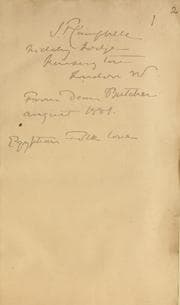 1 2
J F Campbell
Niddry Lodge
Kensington
London W
From Dean Butcher
August 1881.
Egyptian Folk Lore